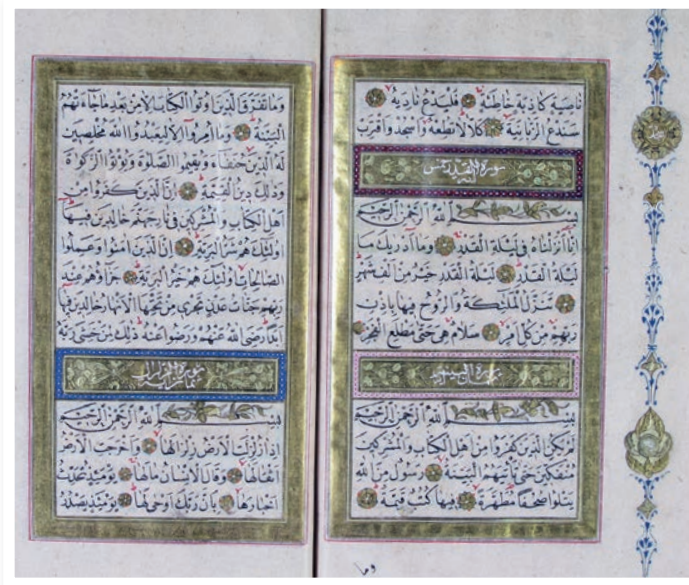 نَاصِيَةٍ كَاذِبَةٍ خَاطِئَةٍ فَلْيَدْعُ نَادِيَهُ
سَنَدْعُ الزَّبَانِيَةَ كَلَّا لَا تُطِعْهُ وَاسْجُدْ وَاقْتَرِبْ
سورة القدر خمس
بِسْمِ اللهِ الرَّحْمٰنِ الرَّحِيمِ
اِنَّا اَنْزَلْنَاهُ فِى لَيْلَةِ الْقَدْرِ وَمَا اَدْرٰيكَ مَا
لَيْلَةُ الْقَدْرِ لَيْلَةُ الْقَدْرِ خَيْرٌ مِنْ اَلْفِ شَهْرٍ
تَنَزَّلُ الْمَلٰئِكَةُ وَالرُّوحُ فِيهَا بِاِذْنِ
رَبِّهِمْ مِنْ كُلِّ اَمْرٍ سَلَامٌ هِىَ حَتّٰى مَطْلَعِ الْفَجْرِ
سورة البينة
بِسْمِ اللهِ الرَّحْمٰنِ الرَّحِيمِ
لَمْ يَكُنِ الَّذِينَ كَفَرُوا مِنْ اَهْلِ الْكِتَابِ وَالْمُشْرِكِينَ
مُنْفَكِّينَ حَتّٰى تَأْتِيَهُمُ الْبَيِّنَةُ رَسُولٌ مِنَ اللهِ
يَتْلُوا صُحُفًا مُطَهَّرَةً فِيهَا كُتُبٌ قَيِّمَةٌ
وما
وَمَا تَفَرَّقَ الَّذِينَ اُوتُوا الْكِتَابَ اِلَّا مِنْ بَعْدِ مَا جَاءَتْهُمُ
الْبَيِّنَةُ وَمَا اُمِرُوا اِلَّا لِيَعْبُدُوا اللهَ مُخْلِصِينَ
لَهُ الدِّينَ حُنَفَاءَ وَيُقِيمُوا الصَّلٰوةَ وَيُؤْتُوا الزَّكٰوةَ
وَذٰلِكَ دِينُ الْقَيِّمَةِ اِنَّ الَّذِينَ كَفَرُوا مِنْ
اَهْلِ الْكِتَابِ وَالْمُشْرِكِينَ فِى نَارِ جَهَنَّمَ خَالِدِينَ فِيهَا
اُولٰئِكَ هُمْ شَرُّ الْبَرِيَّةِ اِنَّ الَّذِينَ اٰمَنُوا وَعَمِلُوا
الصَّالِحَاتِ اُولٰئِكَ هُمْ خَيْرُ الْبَرِيَّةِ جَزَاؤُهُمْ عِنْدَ
رَبِّهِمْ جَنَّاتُ عَدْنٍ تَجْرِى مِنْ تَحْتِهَا الْاَنْهَارُ خَالِدِينَ فِيهَا
اَبَدًا رَضِىَ اللهُ عَنْهُمْ وَرَضُوا عَنْهُ ذٰلِكَ لِمَنْ خَشِىَ رَبَّهُ
سورة الزلزال
بِسْمِ اللهِ الرَّحْمٰنِ الرَّحِيمِ
اِذَا زُلْزِلَتِ الْاَرْضُ زِلْزَالَهَا وَاَخْرَجَتِ الْاَرْضُ
اَثْقَالَهَا وَقَالَ الْاِنْسَانُ مَا لَهَا يَوْمَئِذٍ تُحَدِّثُ
اَخْبَارَهَا بِاَنَّ رَبَّكَ اَوْحٰى لَهَا يَوْمَئِذٍ يَصْدُرُ